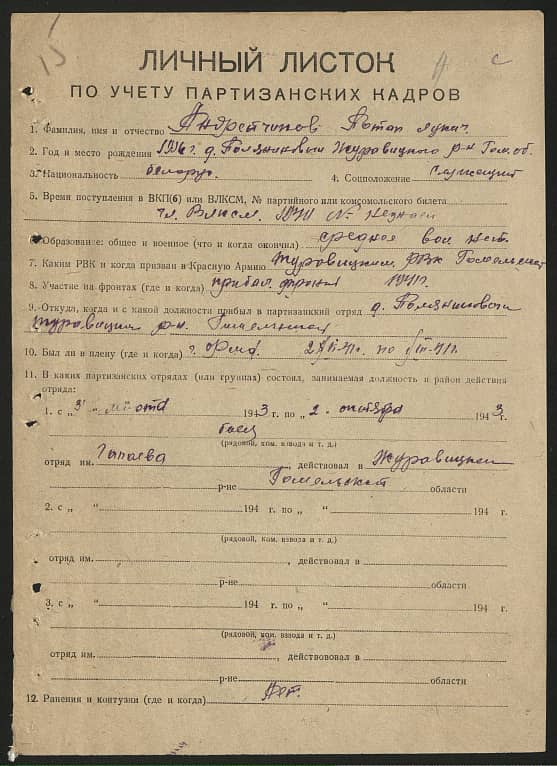 ЛИЧНЫЙ ЛИСТОК
ПО УЧЕТУ ПАРТИЗАНСКИХ КАДРОВ
1. Фамилия, имя и отчество Потап
2. Год и место рождения Журавицкого р-н Гом. об.
3. Национальность белорус. 4. Соцположение служащий
5. Время поступления в ВКП(б) или ВЛКСМ, № партийного или комсомольского билета
чл. Влксм. №
6. Образование: общее и военное (что и когда окончил) среднее воен нет.
7. Каким РВК и когда призван в Красную Армию Журавицким РВК
8. Участие на фронтах (где и когда) прибал. фронт 1941г.
9. Откуда, когда и с какой должности прибыл в партизанский отряд д.
р-н.
10. Был ли в плену (где и когда) г. по
11. В каких партизанских отрядах (или группах) состоял, занимаемая должность и район действия
отряда:
1. с „3" 1943 г. по „2. октября 1943 г.
боец
(рядовой, ком. взвода и т. д.)
отряд им. Чапаева, действовал в Журавицком
р-не Гомельской области
2. с „ " 194 г. по „ " 194 г.
(рядовой, ком. взвода и т. д.)
отряд им. , действовал в
р-не области
3. с „ " 194 г. по „ " 194 г.
(рядовой, ком. взвода и т. д.)
отряд им. , действовал в
р-не области
12. Ранения и контузии (где и когда) Нет.